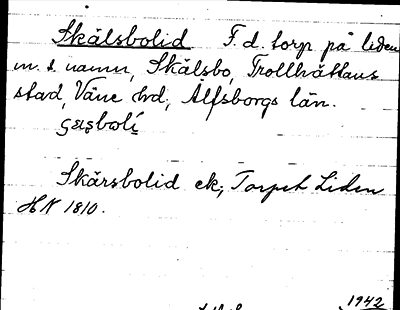 Skålsbolid F. d. torp på liden
m. s. namn, Skålsbo, Trollhättans
stad, Väne hd, Älfsborgs län.
Skårsbolid ek; Torpet Liden
HK 1810.
1942